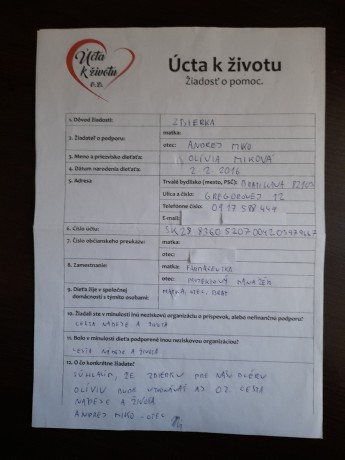 Úcta
k životu
o.z.
Úcta k životu
Žiadosť o pomoc.
1. Dôvod žiadosti: ZBIERKA
2. Žiadateľ o podporu: matka:
otec: ANDREJ MIKO
3. Meno a priezvisko dieťaťa: OLÍVIA MIKOVÁ
4. Dátum narodenia dieťaťa: 2. 2. 2016
5. Adresa Trvalé bydlisko (mesto, PSČ): BRATISLAVA
Ulica a číslo: GREGOROVEJ 12
Telefónne číslo:
E-mail:
6. Číslo účtu:
7. Číslo občianskeho preukazu: matka:
otec:
8. Zamestnanie: matka:
otec:
9. Dieťa žije v spoločnej
domácnosti s týmito osobami: MAMA, OTEC, BRAT
10. Žiadali ste v minulosti inú neziskovú organizáciu o príspevok, alebo nefinančnú podporu?
CESTA NÁDEJE A ŽIVOTA
11. Bolo v minulosti dieťa podporené inou neziskovou organizáciou?
CESTA NÁDEJE A ŽIVOTA
12. O čo konkrétne žiadate?
SÚHLASÍM, ŽE ZBIERKU PRE NAŠU DCÉRU
OLÍVIU BUDE OZ CESTA
NÁDEJE A ŽIVOTA
ANDREJ MIKO - OTEC